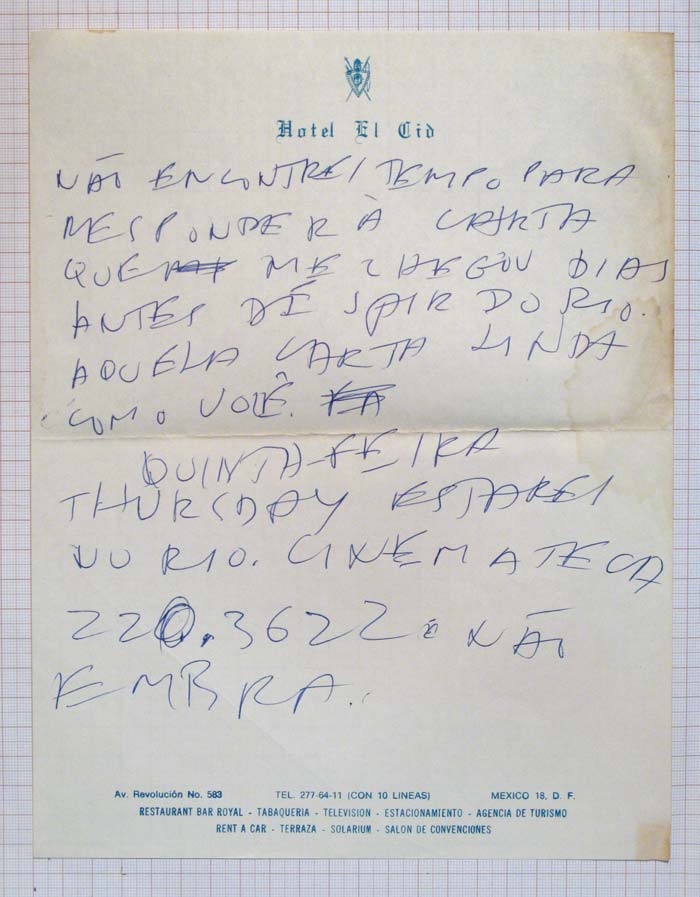 Hotel El Cid
NÃO ENCONTREI TEMPO PARA
RESPONDER À CARTA
QUE ME CHEGOU DIAS
ANTES DE SAIR DO RIO.
AQUELA CARTA LINDA
COMO VOCÊ.
QUINTA-FEIRA
THURSDAY ESTAREI
NO RIO. CINEMATECA
220.3622 e NÃO
EMBRA.
Av. Revolución No. 583 TEL. 277-64-11 (CON 10 LINEAS) MEXICO 18, D. F.
RESTAURANT BAR ROYAL - TABAQUERIA - TELEVISION - ESTACIONAMIENTO - AGENCIA DE TURISMO
RENT A CAR - TERRAZA - SOLARIUM - SALON DE CONVENCIONES